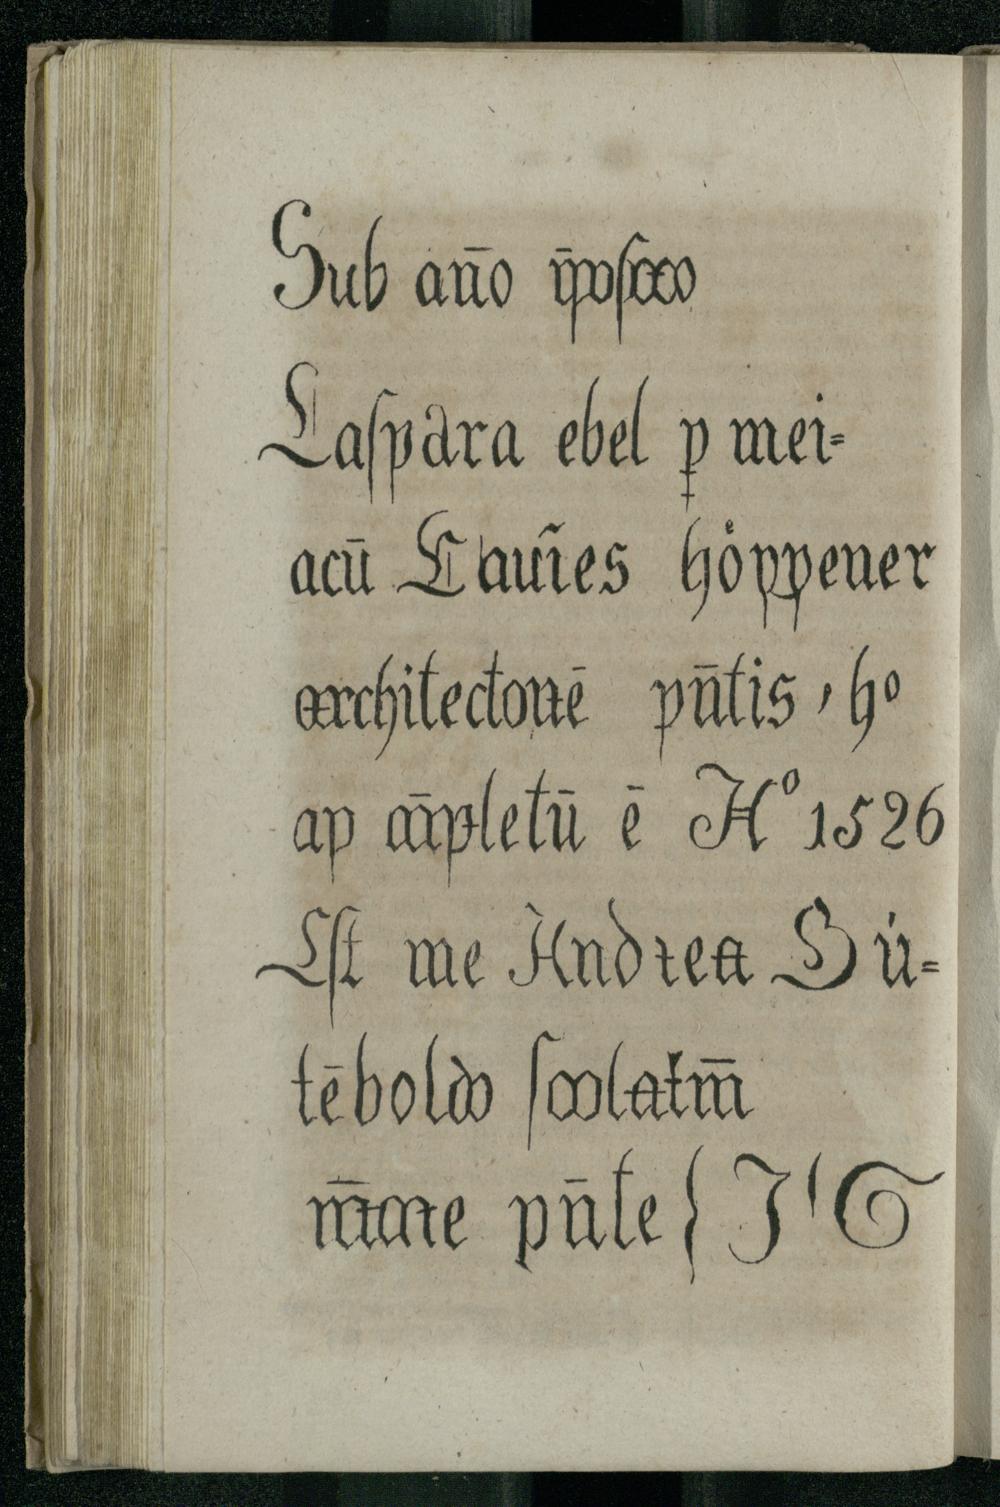 Sub an̄o
Caspara ebel ꝑ mei=
acū Clauĩes hoͤppener
architectonē pn̄tis, hº
ap cōpletū ē Aº 1526
Est me Andrea Gú=
tēboldo scolatm̄
pn̄te { J ' G